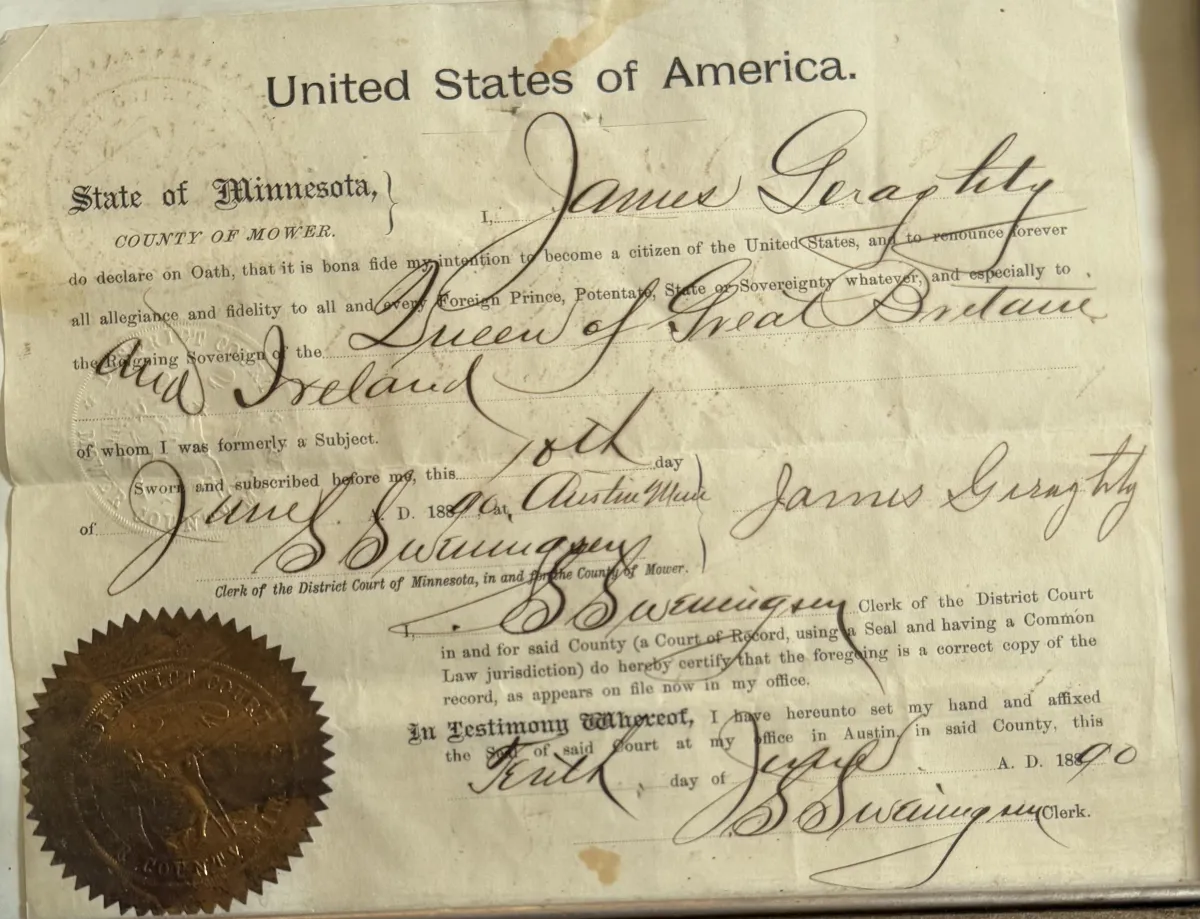 United States of America.
State of Minnesota,
COUNTY OF MOWER.
I, James Geraghty
do declare on Oath, that it is bona fide my intention to become a citizen of the United States, and to renounce forever
all allegiance and fidelity to all and every Foreign Prince, Potentate, State or Sovereignty whatever, and especially to
the Reigning Sovereign of the Queen of Great Britaine
And Ireland
of whom I was formerly a Subject.
Sworn and subscribed before me, this 10th day
of June A. D. 1890, at Austin Minn
James Geraghty
S Sweningsen
Clerk of the District Court of Minnesota, in and for the County of Mower.
I, S Sweningsen Clerk of the District Court
in and for said County (a Court of Record, using a Seal and having a Common
Law jurisdiction) do hereby certify that the foregoing is a correct copy of the
record, as appears on file now in my office.
In Testimony Whereof, I have hereunto set my hand and affixed
the Seal of said Court at my office in Austin, in said County, this
Tenth day of June A. D. 1890
S Sweningsen Clerk.
DISTRICT COURT
COUNTY